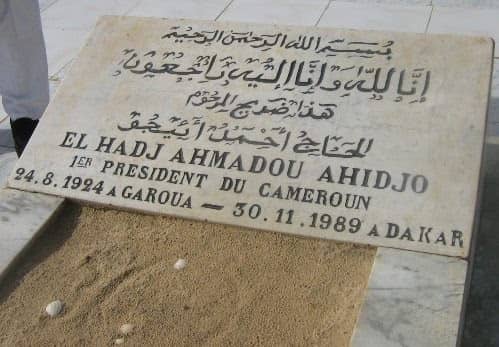 بسم الله الرحمن الرحيم
إنا لله وإنا إليه راجعون
هذا ضريح المرحوم
للحاج أحمد أهيجو
EL HADJ AHMADOU AHIDJO
1ER PRESIDENT DU CAMEROUN
24.8.1924 A GAROUA — 30.11.1989 A DAKAR